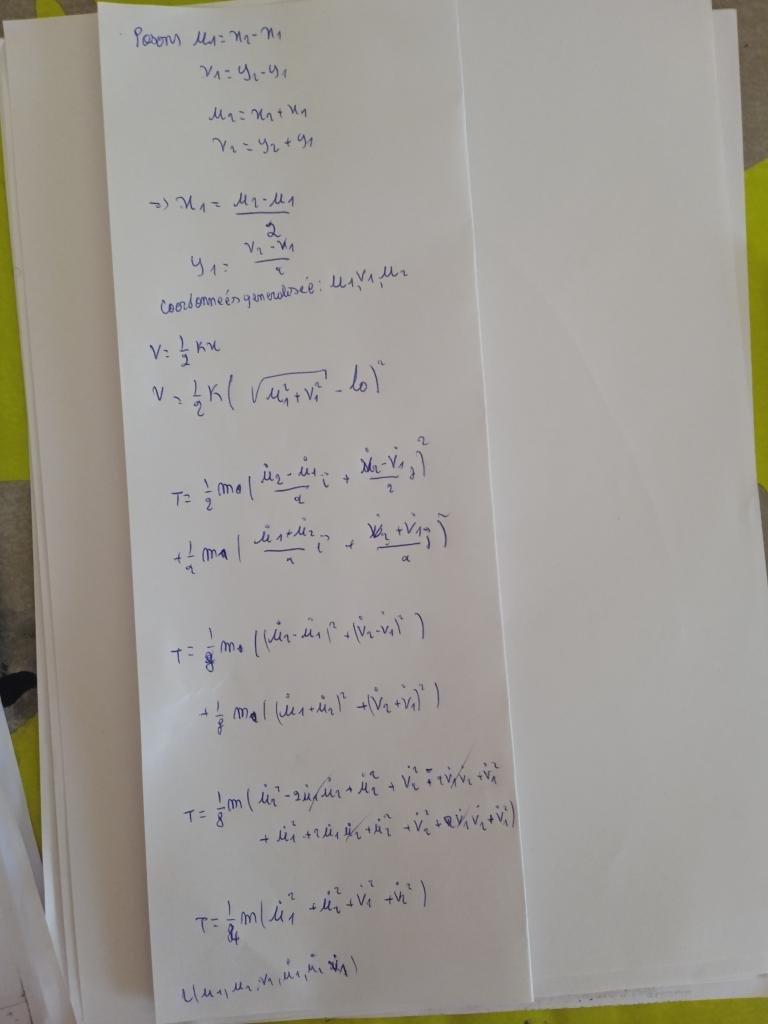 Posons μ1 = x2 - x1
v1 = y2 - y1
μ2 = x2 + x1
v2 = y2 + y1
=> x1 = (μ2 - μ1)/2
y1 = (v2 - v1)/2
Coordonneés generalisée : μ1, v1, μ2
V = 1/2 K x
V = 1/2 K ( √(μ1² + v1²) - l0 )²
T = 1/2 m ( (μ̇2 - μ̇1)/2 i + (v̇2 - v̇1)/2 j )²
+ 1/2 m ( (μ̇1 + μ̇2)/2 i + (v̇2 + v̇1)/2 j )²
T = 1/8 m ( (μ̇2 - μ̇1)² + (v̇2 - v̇1)² )
+ 1/8 m ( (μ̇1 + μ̇2)² + (v̇2 + v̇1)² )
T = 1/8 m ( μ̇2² - 2μ̇1μ̇2 + μ̇2² + v̇2² - 2v̇1v̇2 + v̇1²
+ μ̇1² + 2μ̇1μ̇2 + μ̇2² + v̇2² + 2v̇1v̇2 + v̇1² )
T = 1/4 m ( μ̇1² + μ̇2² + v̇1² + v̇2² )
L(μ1, μ2, v1, μ̇1, μ̇2, v̇1)